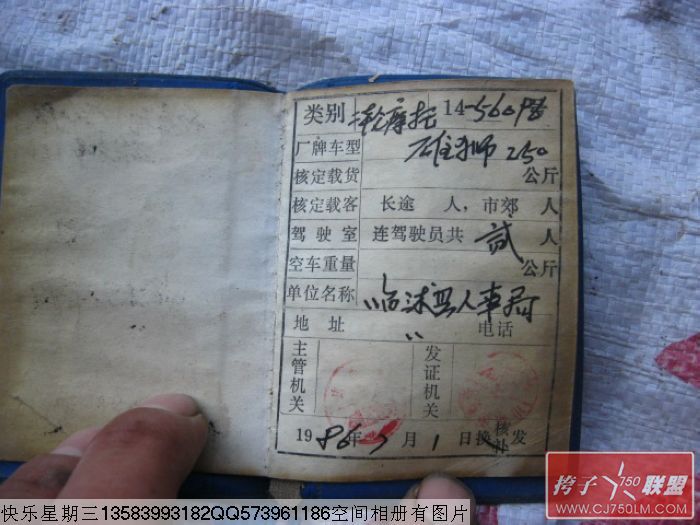 类别 二轮摩托 14-56098
厂牌车型 雄狮 250
核定载货 公斤
核定载客 长途 人，市郊 人
驾驶室 连驾驶员共 贰 人
空车重量 公斤
单位名称 临沭县人事局
地址 〃 电话
主管机关 发证机关
1986年 月1日换核补发
夸子750联盟
WWW.CJ750LM.COM
快乐星期三13583993182QQ573961186空间相册有图片